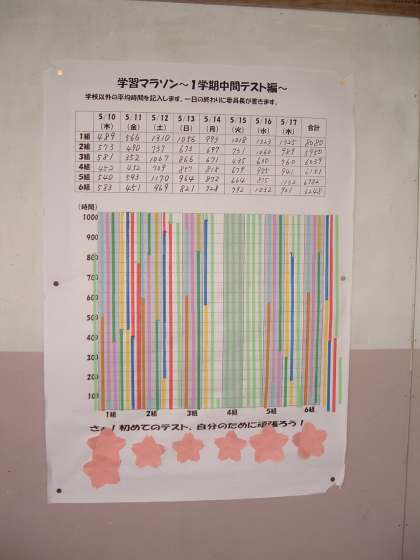 学習マラソン～1学期中間テスト編～
学校以外の平均時間を記入します。一日の終わりに委員長が書きます。
5/10 5/11 5/12 5/13 5/14 5/15 5/16 5/17 合計
(木) (金) (土) (日) (月) (火) (水) (木)
1組 489 566 1310 1056 993 1018 1323 1325 8080
2組 573 490 737
3組 581 352 1067 866 671
4組 452 709 857 818
5組 540 593 1170 964 872
6組 583 451 969 821 728 792 1032
(時間)
1000
900
800
700
600
500
400
300
200
100
1組 2組 3組 4組 5組 6組
さぁ！初めてのテスト、自分のために頑張ろう！